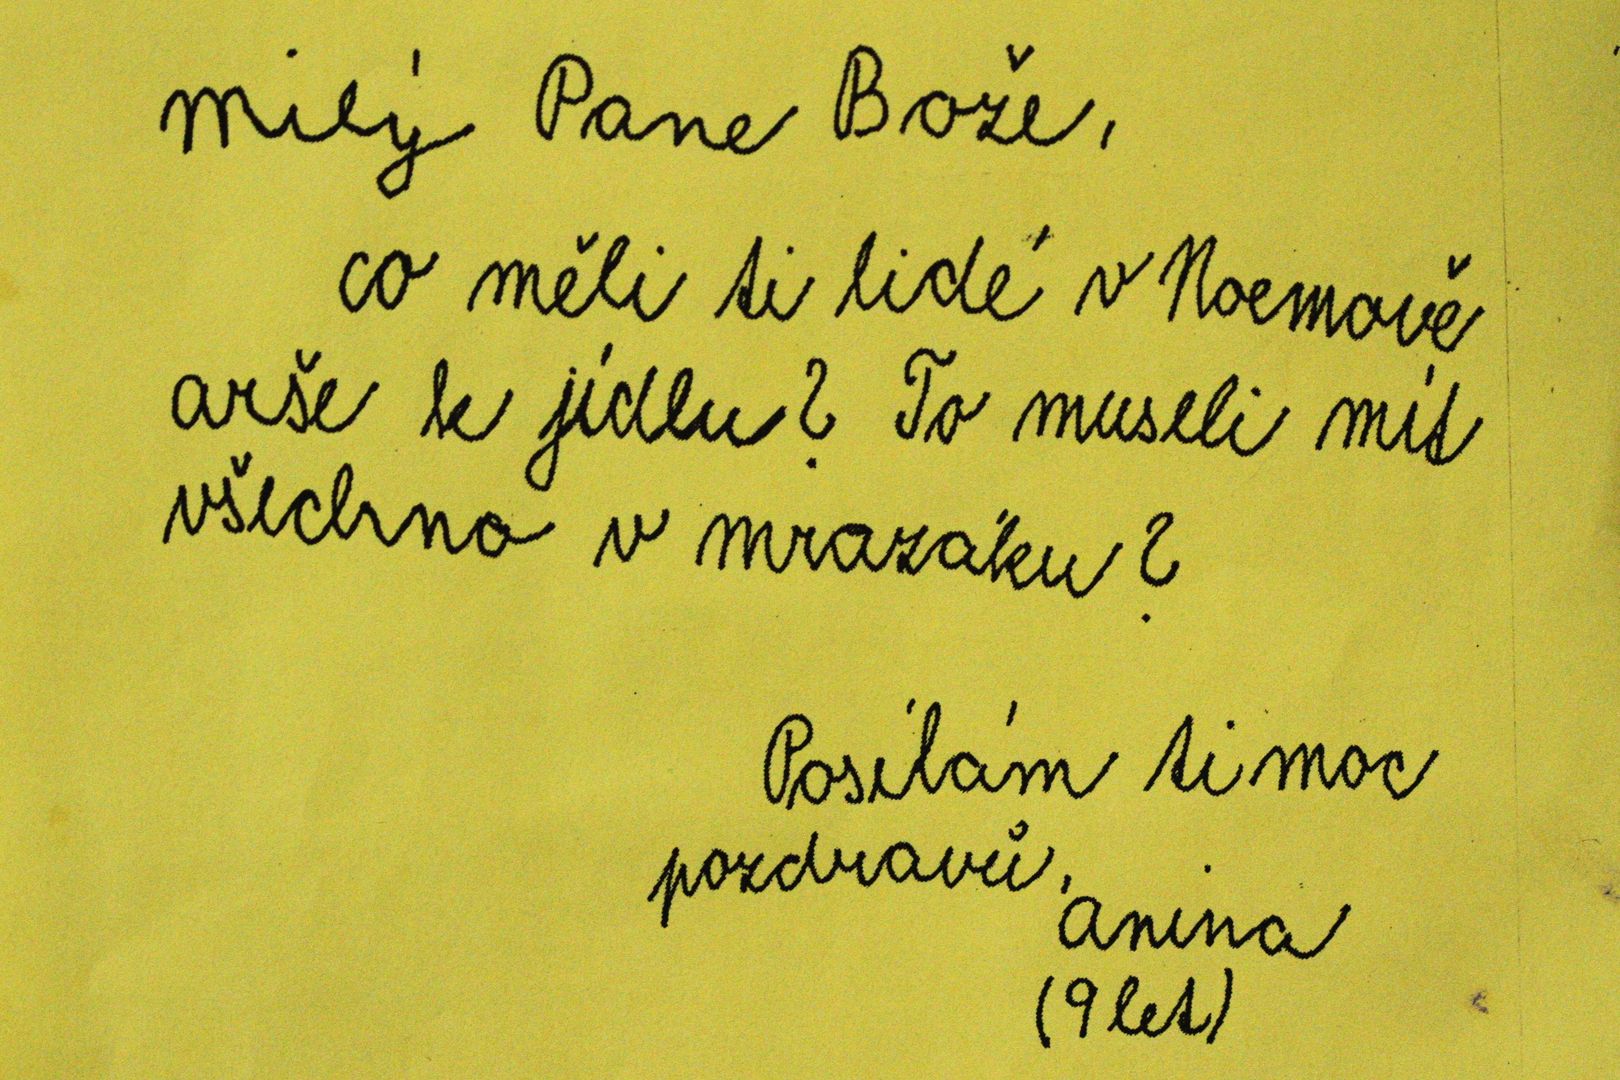 Milý Pane Bože,
co měli ti lidé v Noemově
arše k jídlu? To museli mít
všechno v mrazáku?
Posílám ti moc
pozdravů,
Anina
(9 let)